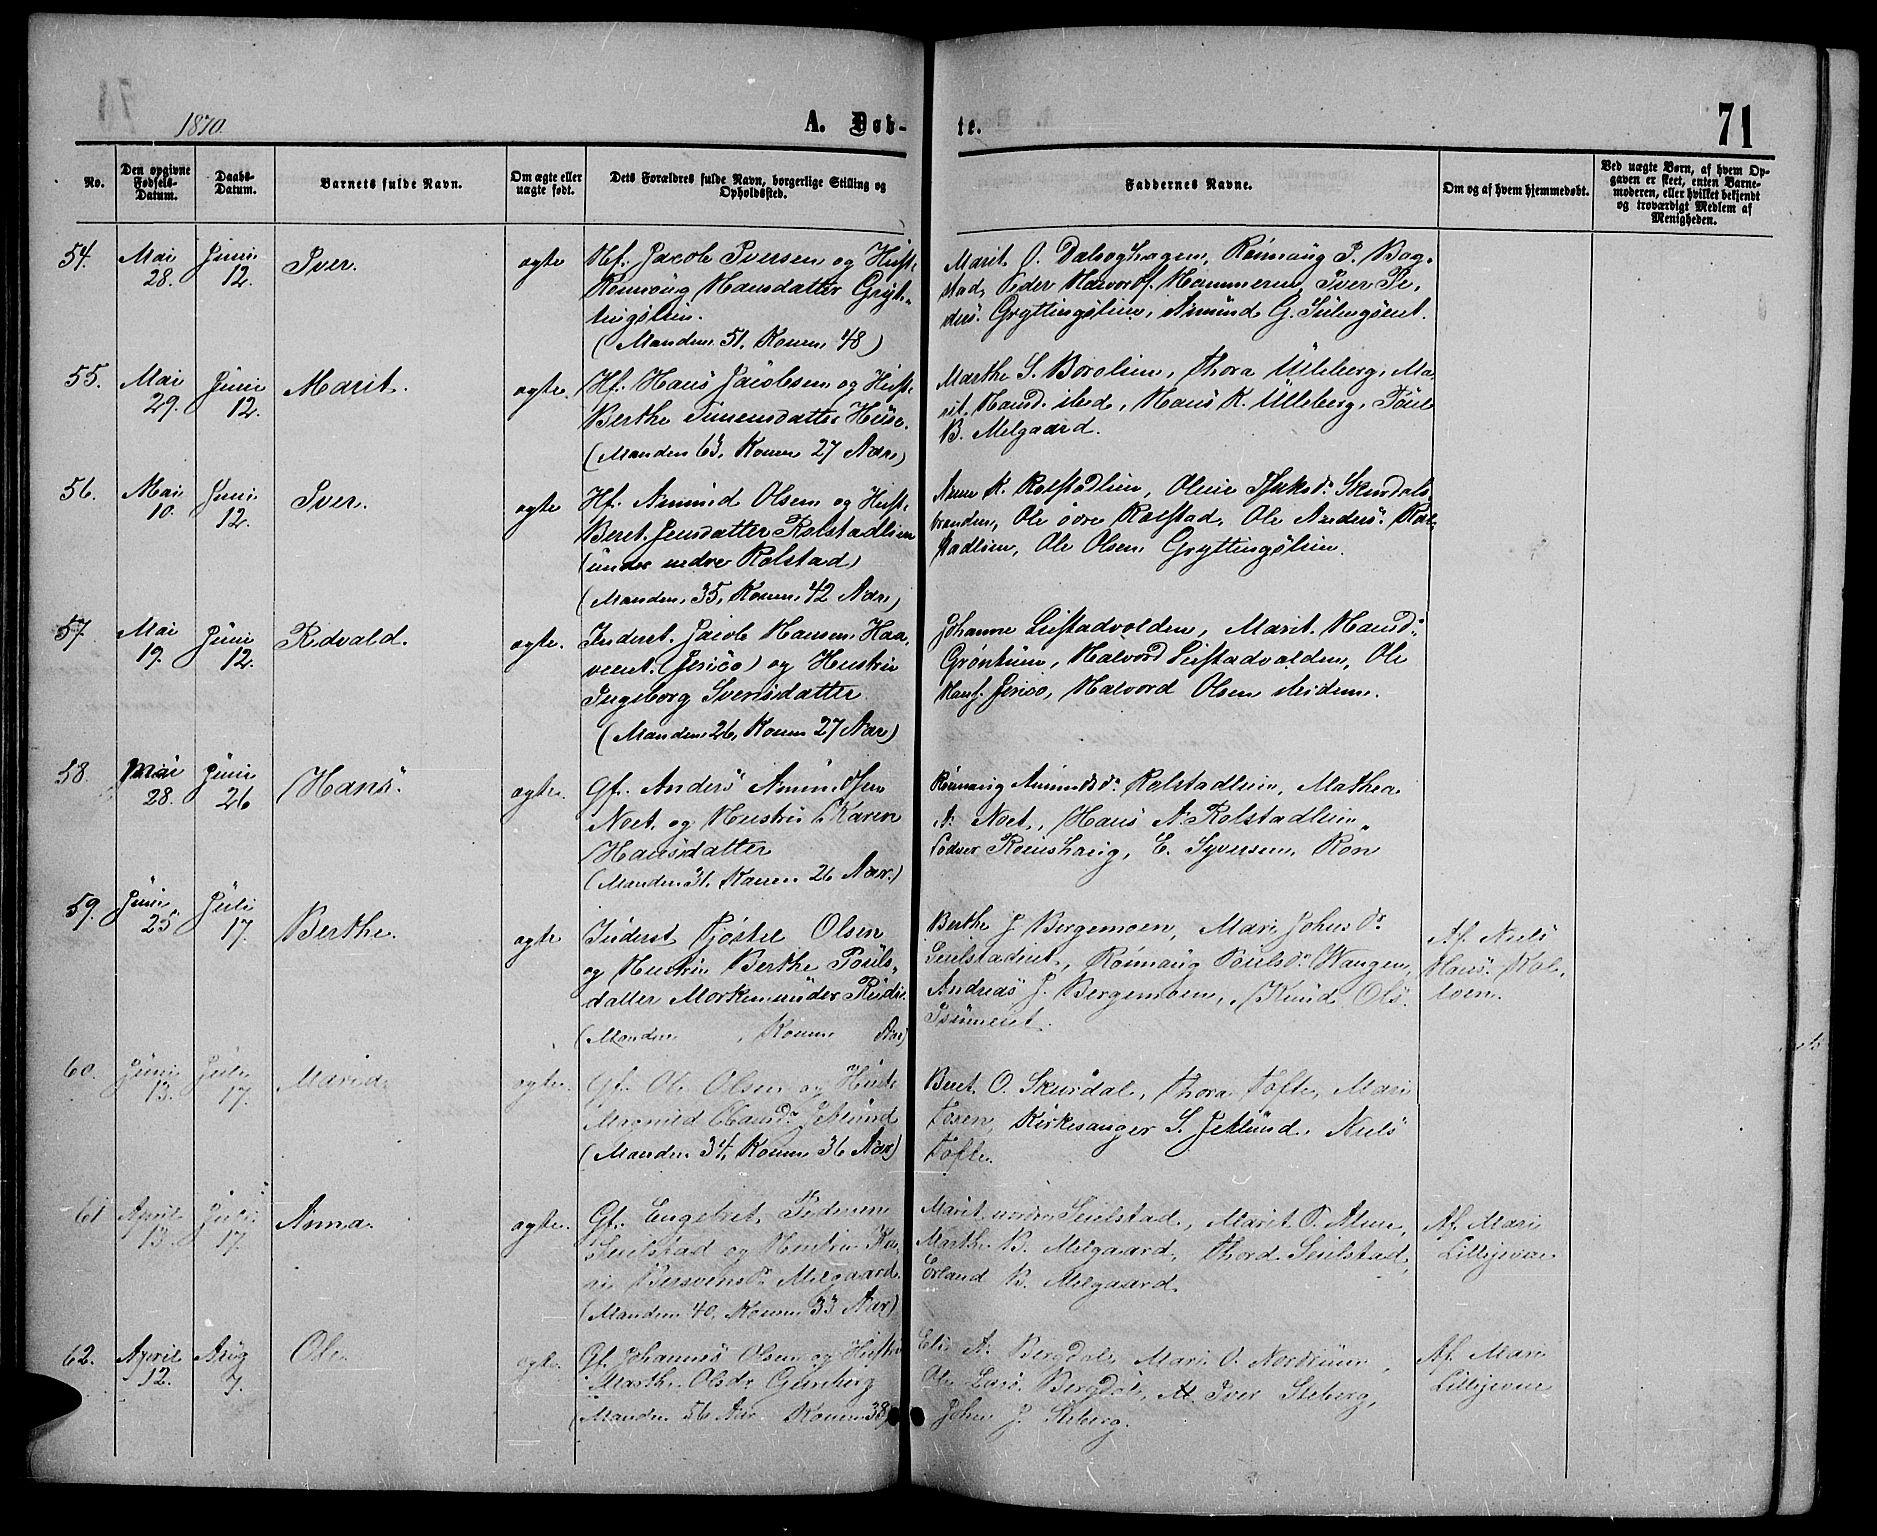 1870.
A. Døb-
te.
71
No.
Den opgivne Fødsels-Datum.
Daabs-Datum.
Barnets fulde Navn.
Om ægte eller uægte født.
Dets Forældres fulde Navn, borgerlige Stilling og Opholdssted.
Faddernes Navne.
Om og af hvem hjemmedøbt.
Ved uægte Børn, af hvem Op-
gaven er skeet, enten Barne-
moderen, eller hvilket bekjendt
og troværdigt Medlem af
Menigheden.
54. Mai 28. Juni 12. Iver. ægte
Hf. Jacob Iversen og Hust.
Rønnaug Hansdatter Gryt-
tingslien.
(Manden 51, Konen 48)
Marit J. Dalseghagen, Rønnaug P. Bag-
stad, Peder Halvors. Hammeren, Iver Pe-
ders. Gryttingslien, Amund G.
55. Mai 29. Juni 12. Marit. ægte.
Hf. Hans Jacobsen og Hust.
Berthe Simensdatter Huse.
(Manden 63, Konen 27 Aar)
Marthe S. Borolien, Thora Ulleberg, Ma-
rit Hansd. sted, Hans K. Ulleberg, Poul
B. Melgaard.
56. Mai 10. Juni 12. Iver. ægte
Hf. Amund Olsen og Hust.
Beret Jensdatter Rolstadlien
(under nedre Rolstad)
(Manden 35, Konen 42 Aar)
Anne K. Rolstadlien, Oline Skurdals-
branden, Ole øvre Rolstad, Ole Anders. Rol-
stadlien, Ole Olsen Gryttingslien.
57. Mai 19. Juni 12. Redvald. ægte.
Inderst. Jacob Hansen Haa-
veent. (Jerico) og Hustru
Ingeborg Svensdatter
(Manden 26, Konen 27 Aar)
Johanne Listadvolden, Marit Hansd.
Grøntuen, Halvord Listadvolden, Ole
Hans. Jerico, Halvord Olsen steiden.
58. Mai 28. Juni 26 Hans. ægte.
Gf. Anders Amundsen
Noet og Hustru Karen
Hansdatter
(Manden 31, Konen 26 Aar.)
Rønnaug Amundsdr Rolstadlien, Mathea
A. Noet, Hans A. Rolstadlien,
Romshaug, E. Syversen, Ron
59. Juni 25 Juli 17. Berthe. ægte
Inderst Kjøstel Olsen
og Hustru Berthe Pouls-
datter Morken under Rudi.
(Manden , Konen Aar)
Berthe J Bergemoen, Mari Johns Dr
Seielstadeiet, Rønnaug Poulsdr Wangen,
Andreas J. Bergemoen, Knud Ols.
Af Niels
Hans. Kol-
loen.
60. Juni 13. Juli 17. Maria. ægte.
Gf. Ole Olsen og Hustr
(Manden 34, Konen 36 Aar)
Beret O. Skurdal, Thora Tofte, Mari
Fosen, Kirkesanger S. Jetlund, Niels
Tofte.
61 April 13. Juli 17. Anna. ægte.
Gf. Engebret Pedersen
Seielstad og Hustru Ka-
ri Melgaard.
(Manden 40, Konen 33 Aar)
Marit nordre Seielstad, Marit O. Alme,
Marthe B. Melgaard, Thord Seielstad,
Erland B. Melgaard
Af Mari
Lillijevne
62. April 12. Aug 7. Ole. ægte.
Gf. Johannes Olsen og Hustru
Marthe Olsdr Gunberg
(Manden 56 Aar. Konen 38)
Eli A. Bergdal, Mari O. Nordruen,
Ole Lars. Bergdal, Iver Steberg,
John J. Steberg.
Af Mari
Lillijevne